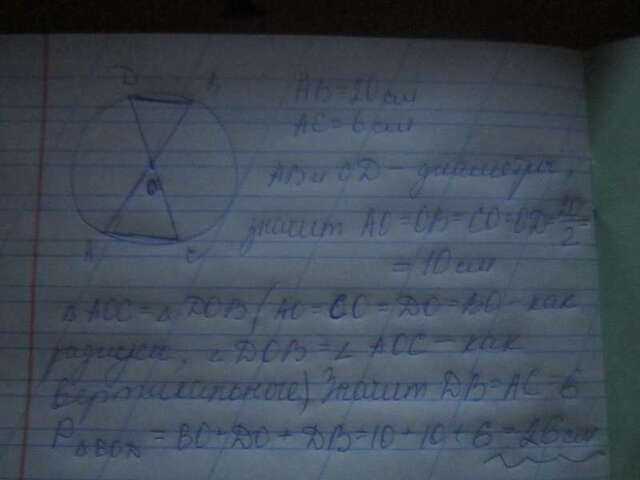 D B
AB = 20 см
AC = 6 см
O
AB и CD – диаметры,
A C
значит AO = OB = CO = OD = AB/2 =
= 10 см
△ AOC = △ DOB (AO = CO = DO = BO – как
радиусы, ∠ DOB = ∠ AOC – как
вертикальные) Значит DB = AC = 6
P △BOD = BO + DO + DB = 10 + 10 + 6 = 26 см